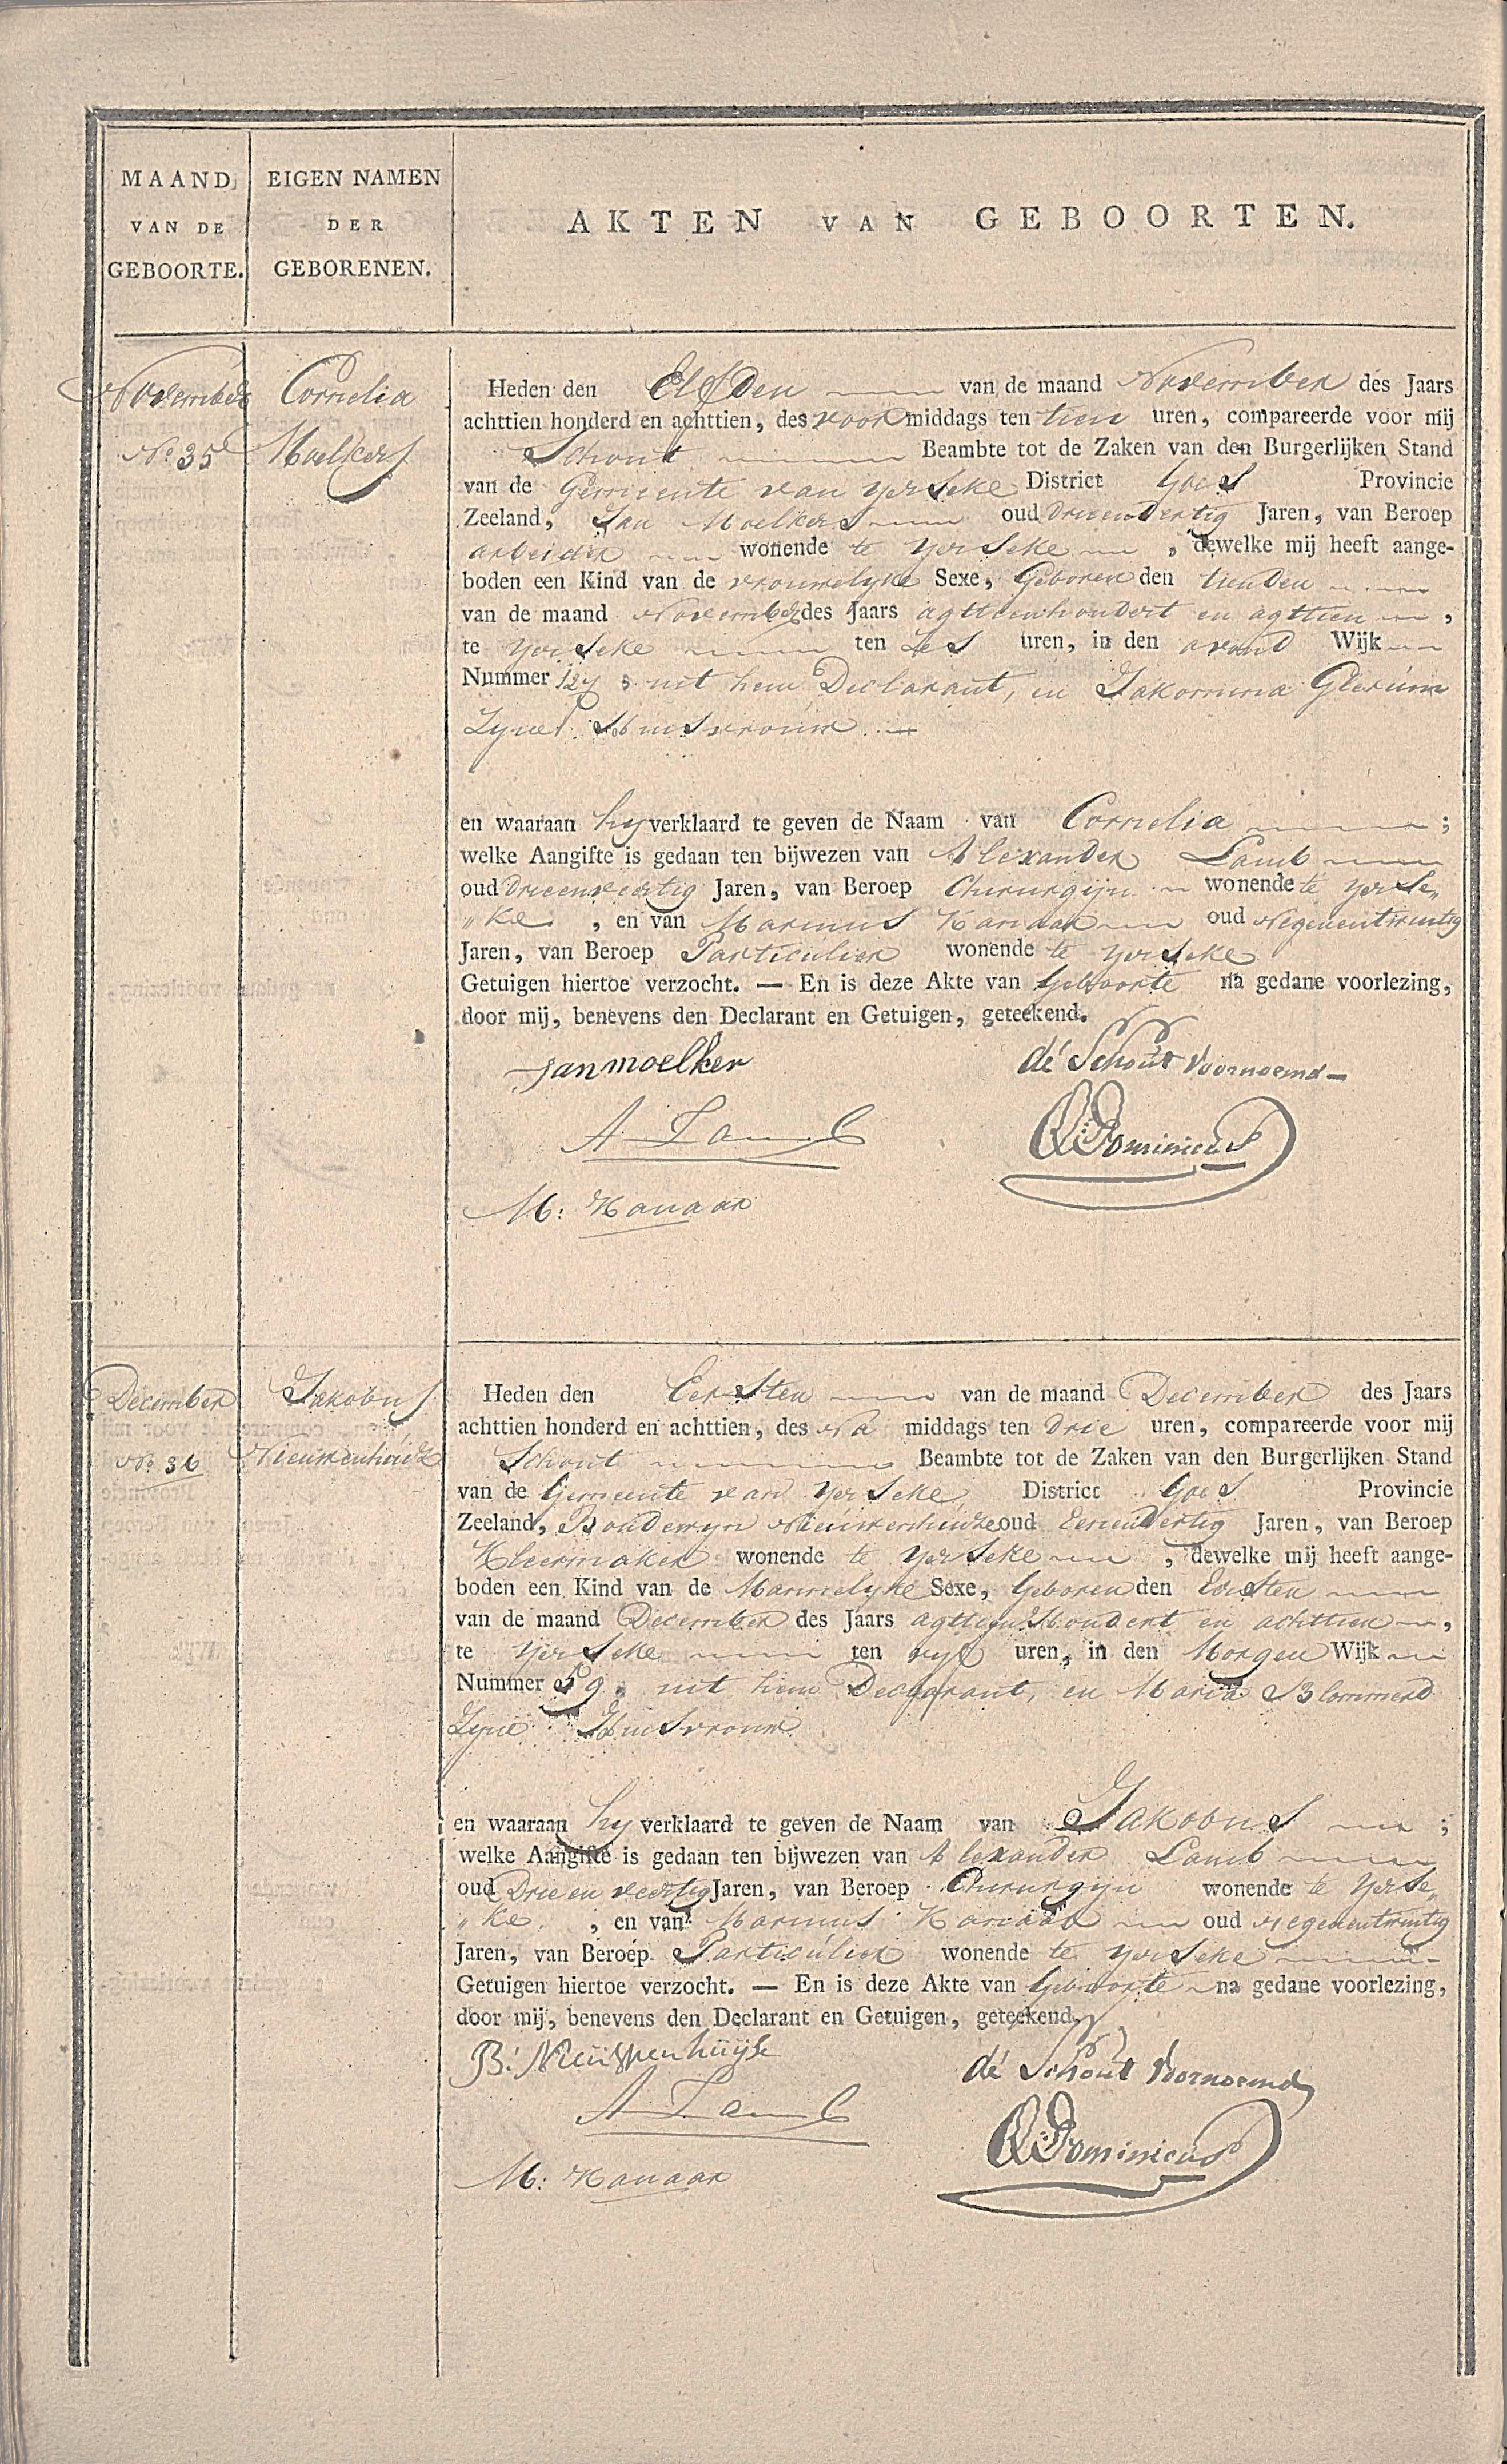 MAAND VAN DE GEBOORTE.
EIGEN NAMEN DER GEBORENEN.
AKTEN VAN GEBOORTEN.
November
No. 35
Cornelia
Moelkers
Heden den Elfden van de maand November des Jaars
achttien honderd en achttien, des voor middags ten tien uren, compareerde voor mij
Schout Beambte tot de Zaken van den Burgerlijken Stand
van de Gemeente van Yerseke District Goes Provincie
Zeeland, Jan Moelkers oud drieendertig Jaren, van Beroep
arbeider wonende te Yerseke, dewelke mij heeft aange-
boden een Kind van de vrouwelyke Sexe, Geboren den tienden
van de maand November des Jaars agttienhondert en agttien,
te Yerseke ten Zes uren, in den avond Wijk
Nummer 127, uit hem Declarant, en Jakomina Glerum
Zyne Huisvrouw.
en waaraan hy verklaard te geven de Naam van Cornelia ;
welke Aangifte is gedaan ten bijwezen van Alexander Lamb
oud drieenveertig Jaren, van Beroep Chirurgyn wonende te Yerse„
„ke, en van Marinus Kanaar oud Negenentwintig
Jaren, van Beroep Particulier wonende te Yerseke
Getuigen hiertoe verzocht. — En is deze Akte van Geboorte na gedane voorlezing,
door mij, benevens den Declarant en Getuigen, geteekend.
jan moelker
dé Schout Voornoemd
A Lamb
Dominicus
M: Kanaar
December
No. 36
Jakobus
Nieuwenhuize
Heden den Eersten van de maand December des Jaars
achttien honderd en achttien, des Na middags ten Drie uren, compareerde voor mij
Schout Beambte tot de Zaken van den Burgerlijken Stand
van de Gemeente van Yerseke, District Goes Provincie
Zeeland, Boudewyn Nieuwenhuize oud Eenendertig Jaren, van Beroep
Kleermaker wonende te Yerseke, dewelke mij heeft aange-
boden een Kind van de Mannelyke Sexe, Geboren den Eersten
van de maand December des Jaars agttien Hondert en achttien,
te Yerseke ten vyf uren, in den Morgen Wijk
Nummer 59, uit hem Declarant, en Maria Blommerd
Zyne Huisvrouw
en waaraan hy verklaard te geven de Naam van Jakobus ;
welke Aangifte is gedaan ten bijwezen van Alexander Lamb
oud Drie en veertig Jaren, van Beroep Chirurgyn wonende te Yerse„
„ke, en van Marinus Kanaar oud Negenentwintig
Jaren, van Beroep Particulier wonende te Yerseke
Getuigen hiertoe verzocht. — En is deze Akte van Geboorte na gedane voorlezing,
door mij, benevens den Declarant en Getuigen, geteekend.
B: Nieuwenhuijse
dé Schout Voornoemd
A Lamb
Dominicus
M: Kanaar